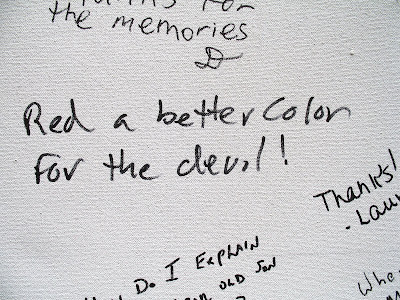 for
the memories
D
Red a better Color
For the devil!
Thanks!
Do I EXPLAIN
OLD Son